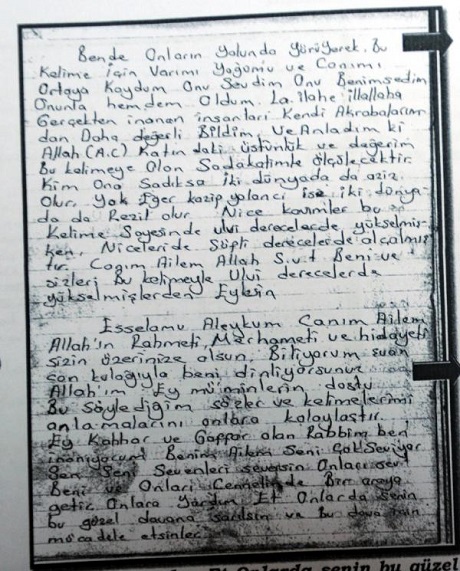 Bende Onların Yolunda Yürüyerek, Bu
Kelime için Varımı Yoğumu ve Canımı
Ortaya Koydum Onu Sevdim Onu Benimsedim
Onunla hemdem Oldum. La ilahe illallaha
Gerçekten inanan insanları Kendi Akrabalarım
dan Daha değerli Bildim, Ve Anladım ki
Allah (A.C) Katındaki üstünlük ve değerim
Bu kelimeye Olan Sadakatimle ölçülecektir.
Kim Ona Sadıksa iki dünyada da aziz
Olur, Yok Eğer kazip yalancı ise iki dünya-
da da Rezil olur Nice kavimler bu
Kelime Sayesinde ulvi derecelerde yükselmiş-
ken, Niceleride Süfli derecelerde alçalmış
tır. Canım Ailem Allah S.v.t Beni ve
sizleri bu kelimeyle Ulvi derecelerde
yükselmişlerden Eylesin
Esselamu Aleykum Canım Ailem
Allah'ın Rahmeti, Merhameti ve hidayeti
sizin üzerinize olsun. Biliyorum şuan
can kulağıyla beni dinliyorsunuz
Allah'ım Ey mü'minlerin dostu
Bu söylediğim sözler ve kelimelerimi
anlamalarını onlara kolaylaştır.
Ey Kahhar ve Gaffar olan Rabbim ben
inanıyorum Benim Ailem Seni Çok Seviyor
Sen Seni Sevenleri seversin Onları sev
Beni ve Onları Cennetinde Bir araya
getir Onlara Yardım Et Onlarda Senin
bu güzel davana sarılsın ve bu dava için
mücadele etsinler
Et Onlarda senin bu güzel